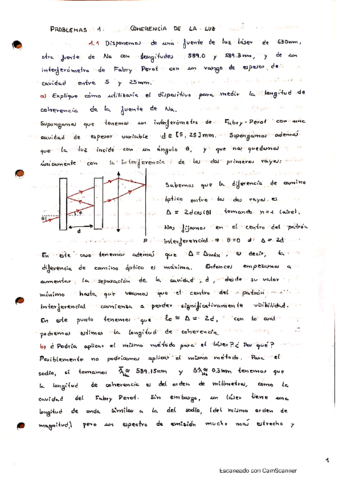 PROBLEMAS 1. COHERENCIA DE LA LUZ
1.1 Disponemos de una fuente de luz láser de 630nm,
otra fuente de Na con longitudes 589.0 y 589.3nm, y de un
interferómetro de Fabry Perot con un rango de espesor de
cavidad entre 5 y 25mm.
a) Explique cómo utilizaría el dispositivo para medir la longitud de
coherencia de la fuente de Na.
Supongamos que tenemos un interferómetro de Fabry-Perot con una
cavidad de espesor variable d∈[5, 25]mm. Supongamos además
que la luz incide con un ángulo θ, y que nos quedamos
únicamente con la interferencia de los dos primeros rayos:
Sabemos que la diferencia de camino
óptico entre los dos rayos es
Δ = 2dcos(θ) tomando n=1 (aire).
Nos fijamos en el centro del patrón
interferencial → θ=0 ⇒ Δ = 2d
En este caso tenemos además que Δ = Δmáx, es decir, la
diferencia de camino óptico es máxima. Entonces empezamos a
aumentar la separación de la cavidad, d, desde su valor
mínimo hasta que veamos que el centro del patrón
interferencial comienza a perder significativamente visibilidad.
En este punto tenemos que lc ≈ Δ = 2d, con lo cual
podremos estimar la longitud de coherencia.
b) ¿Podría aplicar el mismo método para el láser? ¿Por qué?
Posiblemente no podríamos aplicar el mismo método. Para el
sodio, si tomamos λNa ≈ 589.15nm y Δλ ≈ 0.3nm tenemos que
la longitud de coherencia es del orden de milímetros, como la
cavidad del Fabry Perot. Sin embargo, un láser tiene una
longitud de onda similar a la del sodio, (del mismo orden de
magnitud) pero un espectro de emisión mucho más estrecho y
1
Escaneado con CamScanner